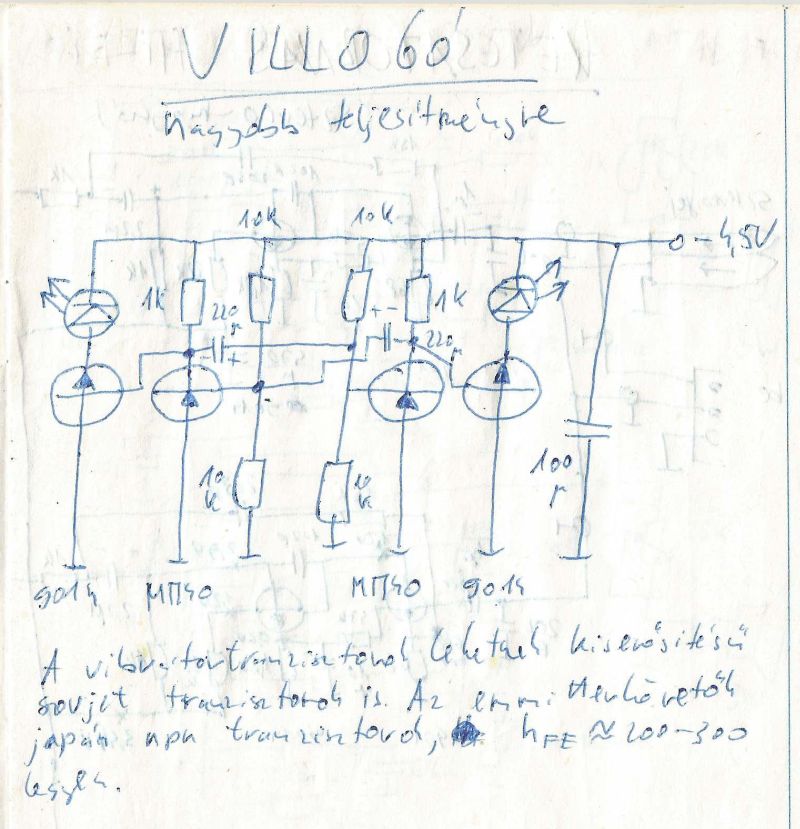 VILLOGÓ
nagyobb teljesítményre
10k 10k
- 4,5V
1k 220 μ + - 1k
- + 220 μ
10 k 10 k 100 μ
9014 МП40 МП40 9014
A vibrátortranzisztorok lehetnek kiserősítésű
sovjet tranzisztorok is. Az emmitterkövetők
japán npn tranzisztorok, hFE ≈ 200-300
legyen.